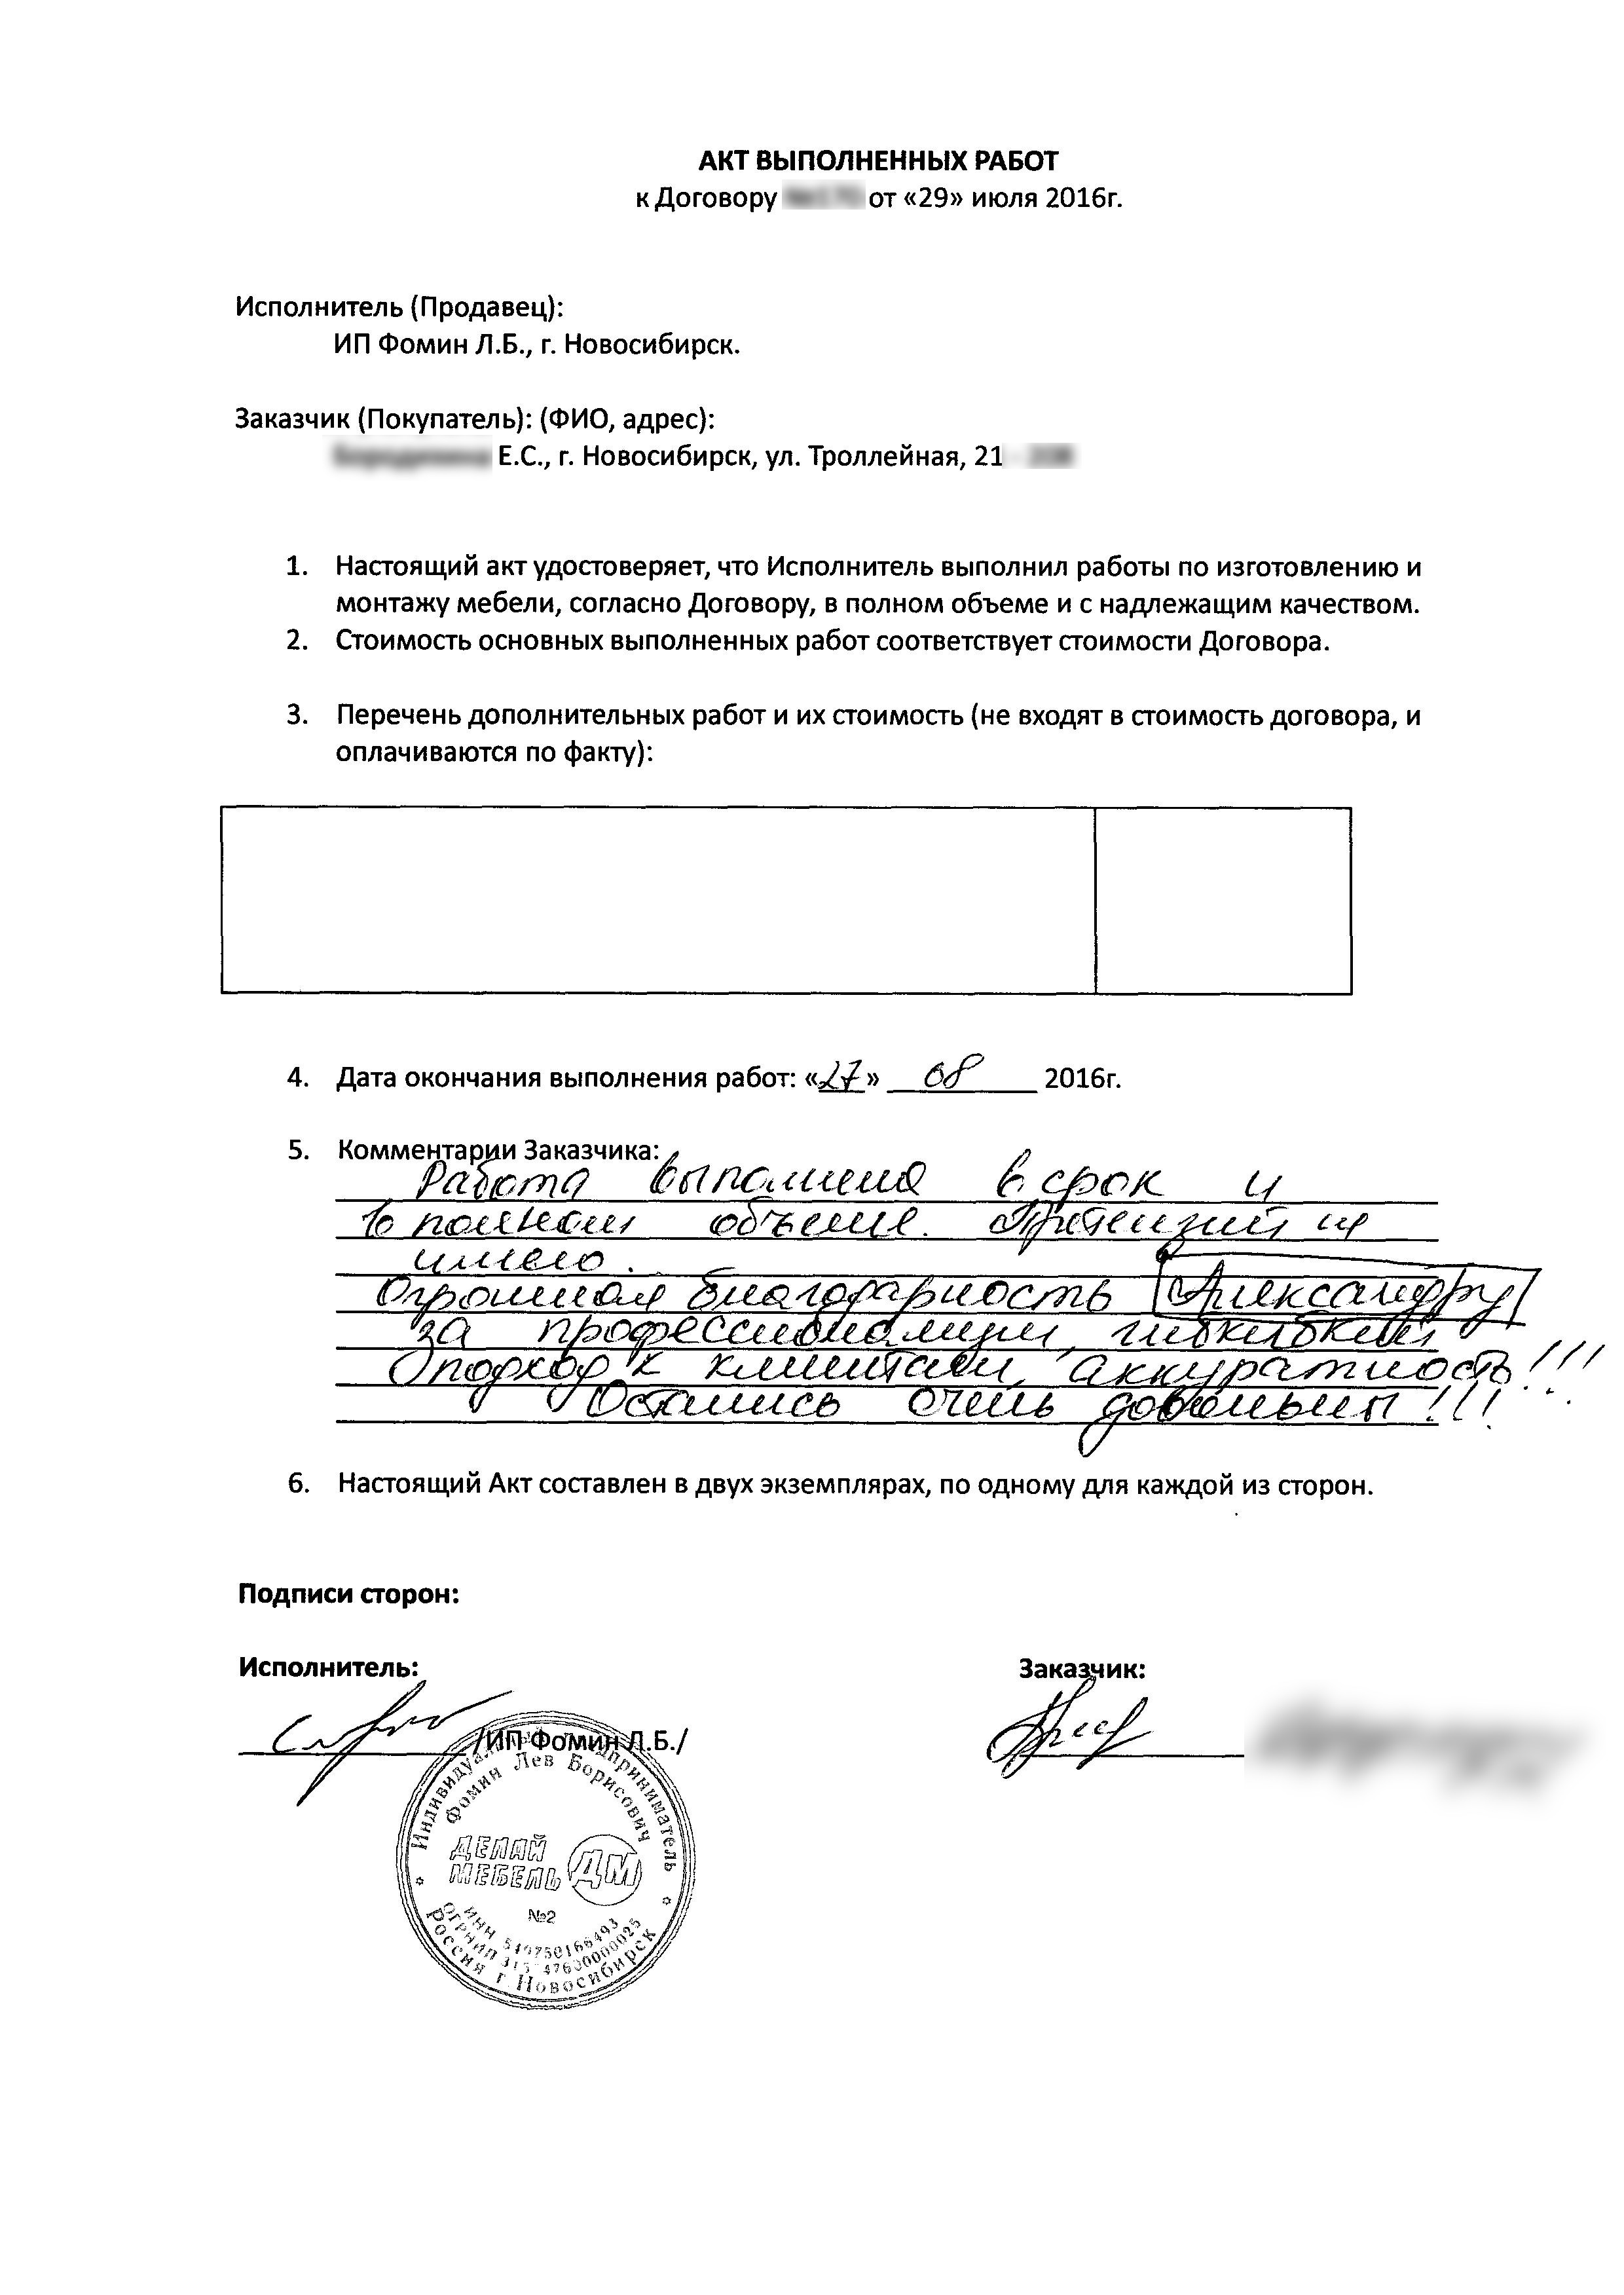 АКТ ВЫПОЛНЕННЫХ РАБОТ
к Договору от «29» июля 2016г.
Исполнитель (Продавец):
ИП Фомин Л.Б., г. Новосибирск.
Заказчик (Покупатель): (ФИО, адрес):
Е.С., г. Новосибирск, ул. Троллейная, 21
1. Настоящий акт удостоверяет, что Исполнитель выполнил работы по изготовлению и
монтажу мебели, согласно Договору, в полном объеме и с надлежащим качеством.
2. Стоимость основных выполненных работ соответствует стоимости Договора.
3. Перечень дополнительных работ и их стоимость (не входят в стоимость договора, и
оплачиваются по факту):
4. Дата окончания выполнения работ: «27» 08 2016г.
5. Комментарии Заказчика:
Работа выполнена в срок и
в полном объеме. Претензий не
имею.
Огромная благодарность Александру
за профессионализм,
подход к клиентам, аккуратность!!!
Остались очень довольны!!!
6. Настоящий Акт составлен в двух экземплярах, по одному для каждой из сторон.
Подписи сторон:
Исполнитель: Заказчик:
/ИП Фомин Л.Б./
Индивидуальный предприниматель
Фомин Лев Борисович
ДЕЛАЙ
МЕБЕЛЬ ДМ
№2
ИНН
ОГРНИП
Россия г. Новосибирск